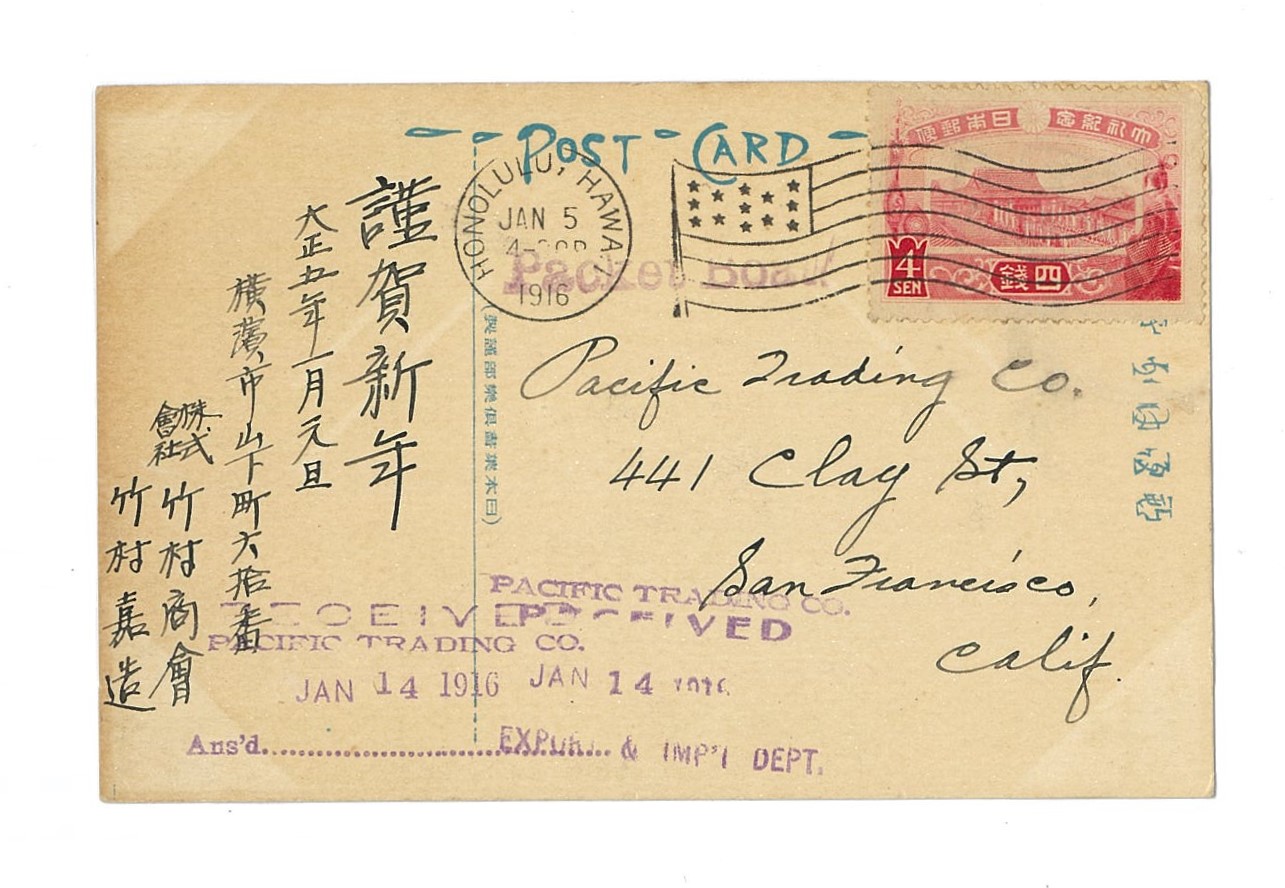 POST CARD
大礼紀念 日本郵便
4
SEN
四錢
HONOLULU, HAWAII
JAN 5
1916
Packet Boat
Pacific Trading Co.
441 Clay St,
San Francisco,
Calif.
謹賀新年
大正五年一月元旦
横濱市山下町六拾番
株式會社
竹村商會
竹村嘉造
PACIFIC TRADING CO.
RECEIVED
JAN 14 1916
EXPORT & IMP'T DEPT.
RECEIVED
PACIFIC TRADING CO.
JAN 14 1916
Ans'd